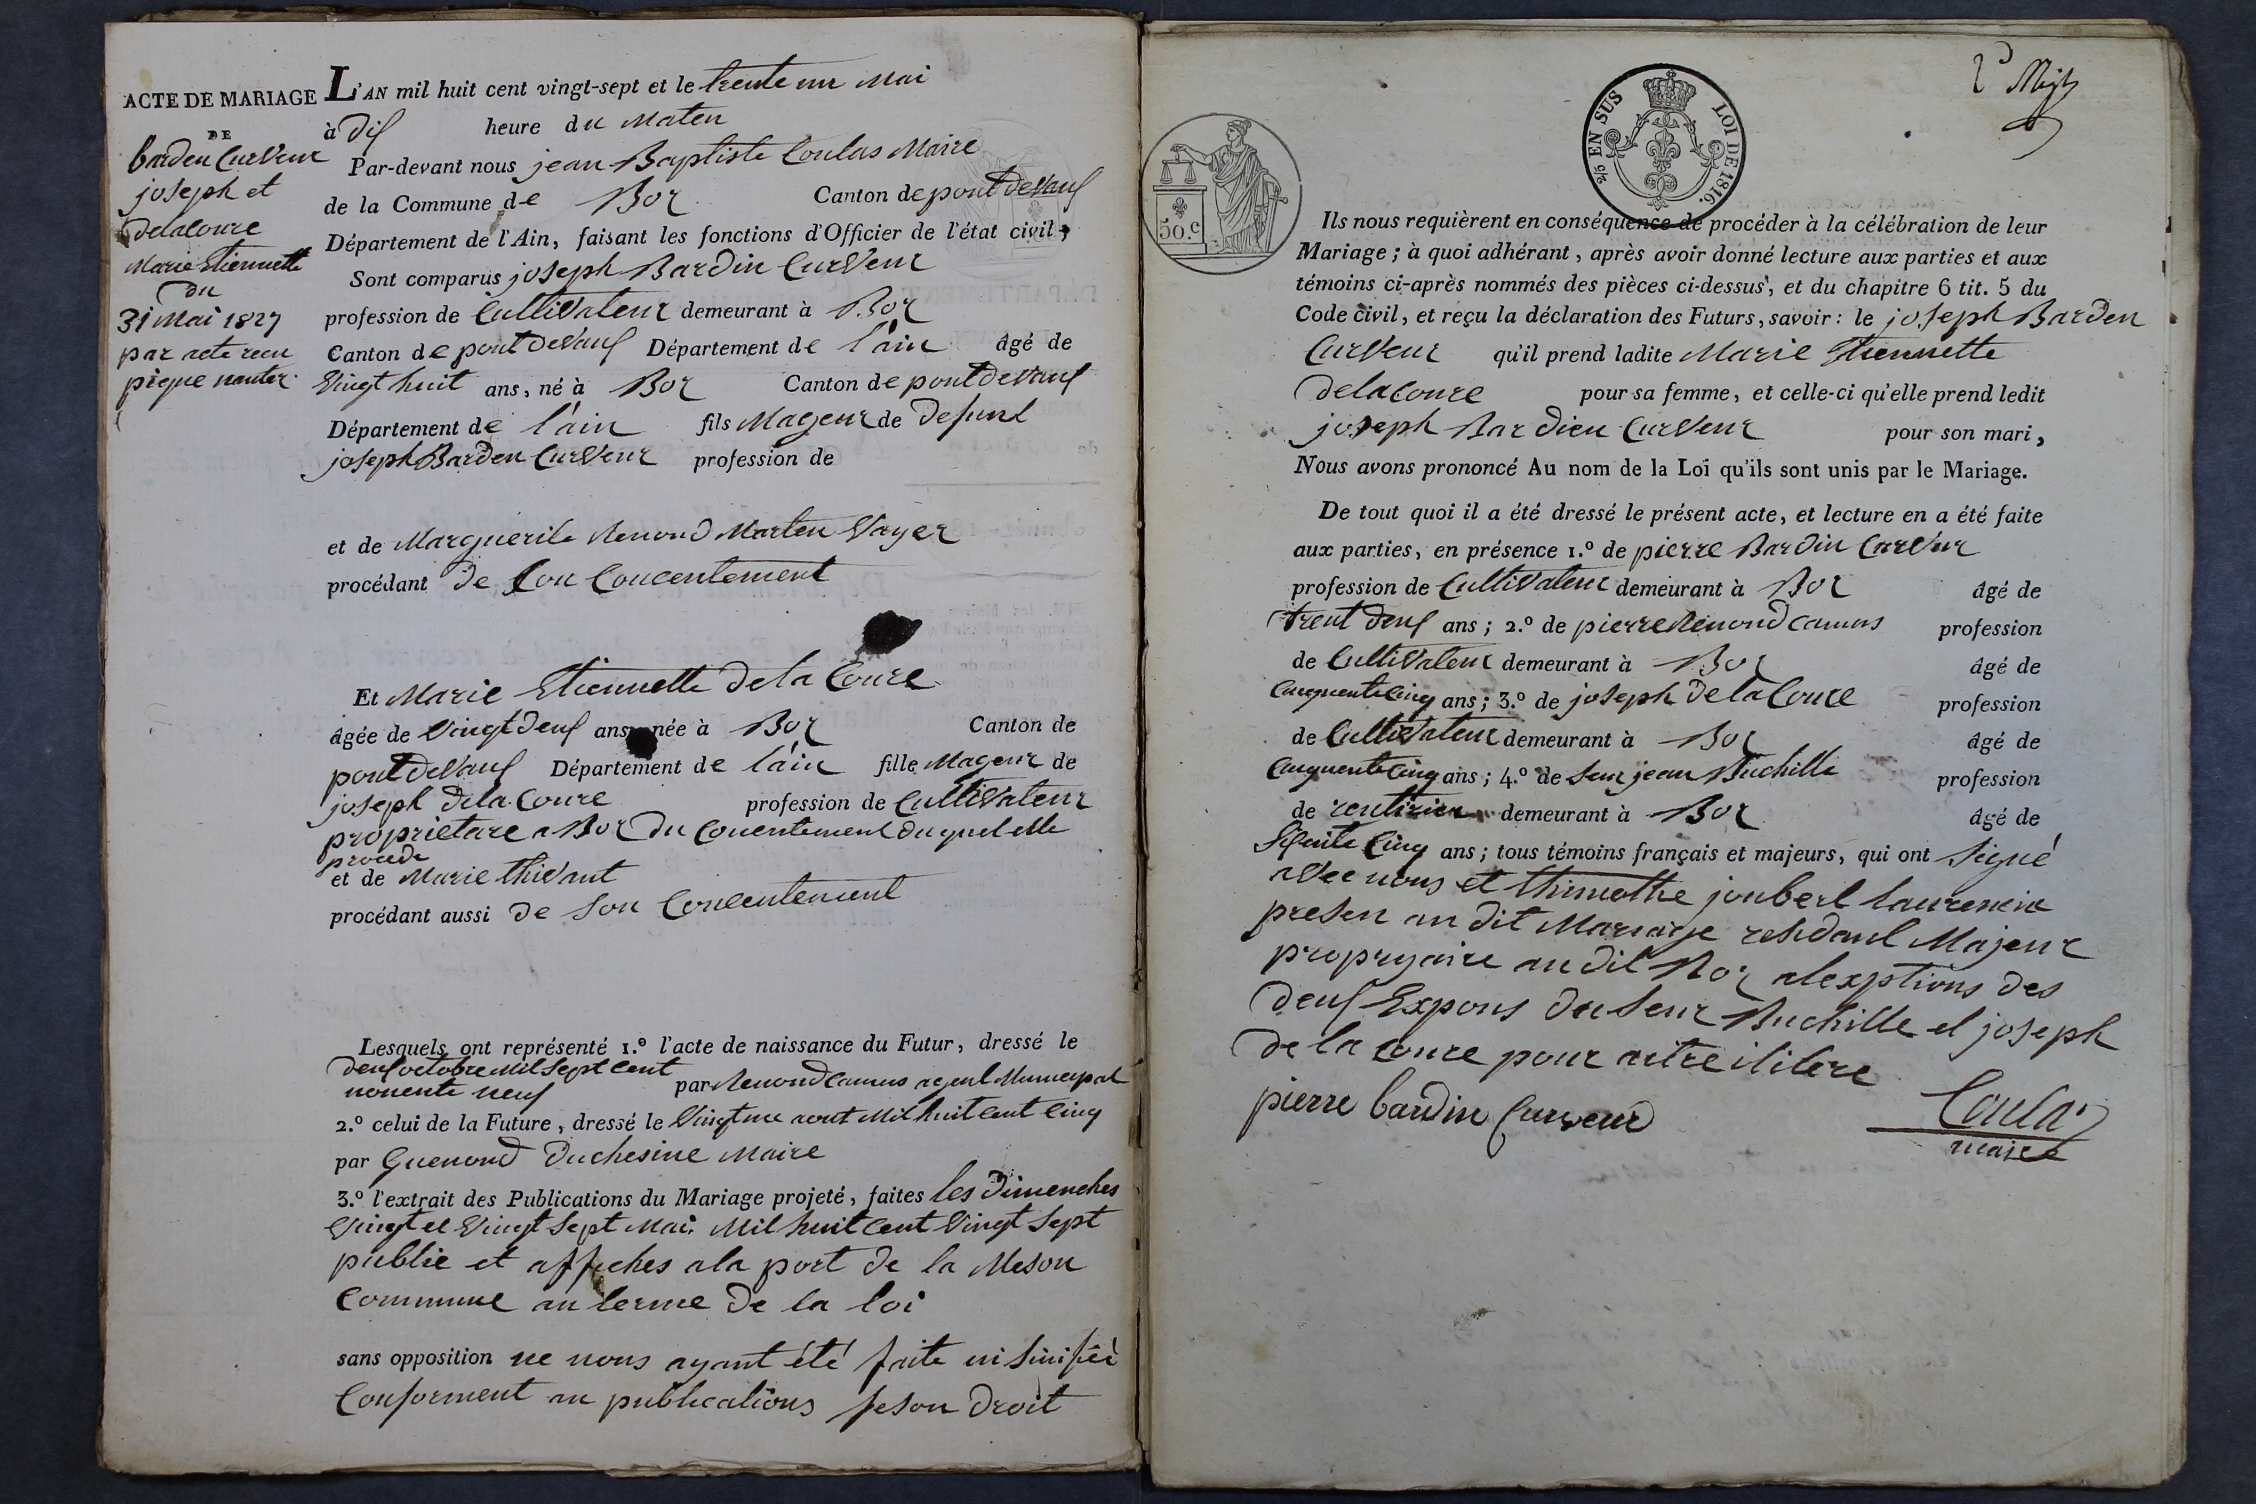 ACTE DE MARIAGE
DE
bardin Curveur
joseph et
delacoure
Marie Etiennette
du
31 Mai 1827
par acte recu
L'AN mil huit cent vingt-sept et le trente un Mai
à dix heure du Maten
Par-devant nous jean Baptiste Coulas Maire
de la Commune de Boz Canton de pont devaux
Département de l'Ain, faisant les fonctions d'Officier de l'état civil,
Sont comparus joseph Bardin Curveur
profession de Cultivateur demeurant à Boz
Canton de pont devaux Département de l'ain âgé de
Vingt huit ans, né à Boz Canton de pont devaux
Département de l'ain fils Mageur de defunt
joseph Barden Curveur profession de
et de Marguerite Renoud Marten Vayer
procédant de son Concentement
Et Marie Etiennette de la Coure
âgée de Vingt deux ans, née à Boz Canton de
pont devaux Département de l'ain fille Mageur de
joseph dela Coure profession de Cultivateur
proprietare a Boz du Conentement duquel elle
procede
et de Marie thivant
procédant aussi de son Concentement
Lesquels ont représenté 1.º l'acte de naissance du Futur, dressé le
deux octobre Mil sept cent
nonente neuf par Renoud Camus agent Municipal
2.º celui de la Future, dressé le Vingt une aout Mil huit cent cinq
par Guenoud Duchesine Maire
3.º l'extrait des Publications du Mariage projeté, faites les dimenches
Vingt et Vingt sept Mai Mil huit Cent Vingt sept
publie et affiches ala port de la Meson
Commune au terme de la loi
sans opposition ne nous ayant été faite ni sinifiée
Conforment au publications feson droit
50.c
2/5 EN SUS LOI DE 1816.
Ils nous requièrent en conséquence de procéder à la célébration de leur
Mariage; à quoi adhérant, après avoir donné lecture aux parties et aux
témoins ci-après nommés des pièces ci-dessus, et du chapitre 6 tit. 5 du
Code civil, et reçu la déclaration des Futurs, savoir: le joseph Barden
Curveur qu'il prend ladite Marie Etiennette
delacoure pour sa femme, et celle-ci qu'elle prend ledit
joseph Bardien Curveur pour son mari,
Nous avons prononcé Au nom de la Loi qu'ils sont unis par le Mariage.
De tout quoi il a été dressé le présent acte, et lecture en a été faite
aux parties, en présence 1.º de pierre Bardin Curveur
profession de Cultivateur demeurant à Boz âgé de
trent deux ans; 2.º de pierre Renoud camus profession
de Cultivateur demeurant à Boz âgé de
Cinquente Cinq ans; 3.º de joseph De la Coure profession
de Cultivateur demeurant à Boz âgé de
Cinquente Cinq ans; 4.º de seur jean Buchille profession
de rentirier demeurant à Boz âgé de
Cinq ans; tous témoins français et majeurs, qui ont signé
avec nous et thimothe joubert
presen au dit Mariage residant Majeur
propryaire au dit Boz alexptions des
deux Expous du seur Buchille et joseph
de la coure pour aitre ilitere
pierre bardin Curveur
Coulas
maire